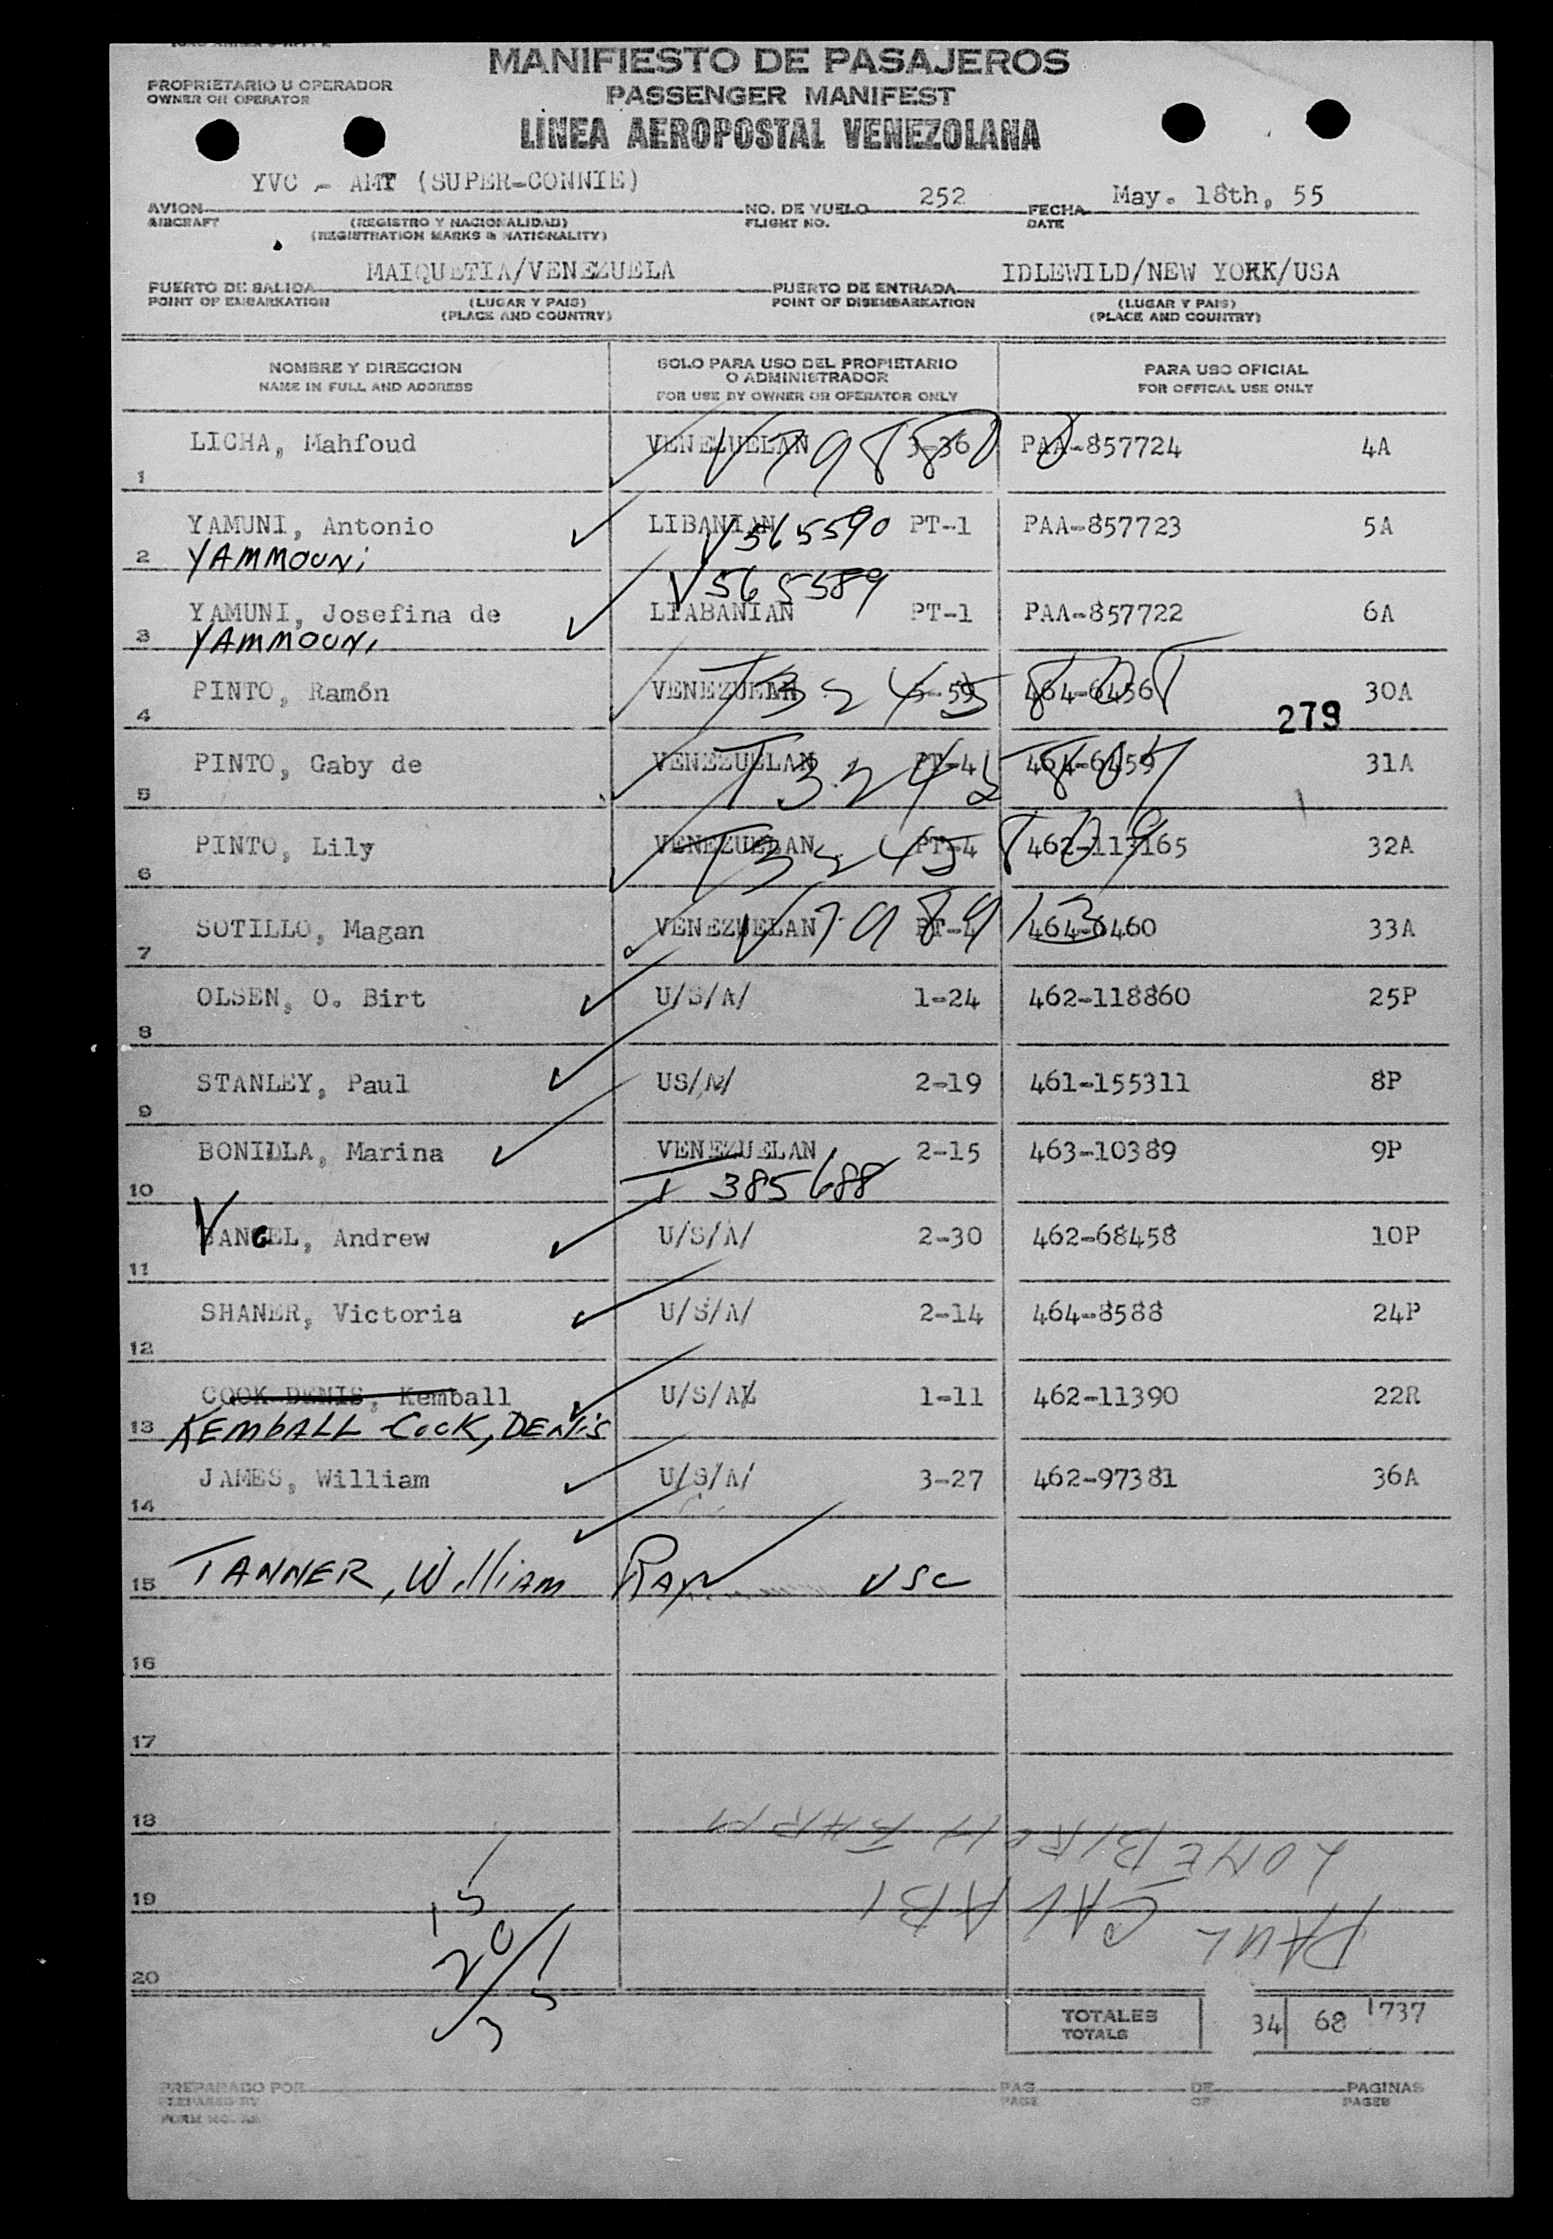 MANIFIESTO DE PASAJEROS
PROPRIETARIO U OPERADOR
OWNER OR OPERATOR
PASSENGER MANIFEST
LINEA AEROPOSTAL VENEZOLANA
YVC - AMT (SUPER-CONNIE) 252 May. 18th, 55
AVION NO. DE VUELO FECHA
AIRCRAFT (REGISTRO Y NACIONALIDAD) FLIGHT NO. DATE
(REGISTRATION MARKS & NATIONALITY)
MAIQUETIA/VENEZUELA IDLEWILD/NEW YORK/USA
PUERTO DE SALIDA PUERTO DE ENTRADA
POINT OF EMBARKATION (LUGAR Y PAIS) POINT OF DISEMBARKATION (LUGAR Y PAIS)
(PLACE AND COUNTRY) (PLACE AND COUNTRY)
NOMBRE Y DIRECCION SOLO PARA USO DEL PROPIETARIO PARA USO OFICIAL
O ADMINISTRADOR
NAME IN FULL AND ADDRESS FOR USE BY OWNER OR OPERATOR ONLY FOR OFFICAL USE ONLY
1 LICHA, Mahfoud VENEZUELAN 3-36 PAA-857724 4A
2 YAMUNI, Antonio LIBANIAN PT-1 PAA-857723 5A
YAMMOUNi V565590
V565589
3 YAMUNI, Josefina de LIABANIAN PT-1 PAA-857722 6A
YAMMOUNi
4 PINTO, Ramón T3245808 30A
279
5 PINTO, Gaby de VENEZUELAN PT-4 464-6459 31A
T3245807
6 PINTO, Lily VENEZUELAN PT-4 462-113165 32A
T3245809
7 SOTILLO, Magan VENEZUELAN PT-4 464-6460 33A
V798913
8 OLSEN, O. Birt U/S/A/ 1-24 462-118860 25P
9 STANLEY, Paul US/A/ 2-19 461-155311 8P
10 BONIDLA, Marina VENEZUELAN 2-15 463-10389 9P
T 385688
11 VANGEL, Andrew U/S/A/ 2-30 462-68458 10P
12 SHANER, Victoria U/S/A/ 2-14 464-8588 24P
13 COOK DENIS, Kemball U/S/A/ 1-11 462-11390 22R
KEMBALL-COOK, DENiS
14 JAMES, William U/S/A/ 3-27 462-97381 36A
15 TANNER, William RAY USC
16
17
18
LONE BIRCH FARM
19
PAUL CAVABI
15
20/1
20
35
TOTALES 34 68 1737
TOTALS
PREPARADO POR PAG. DE PAGINAS
PREPARED BY PAGE OF PAGES